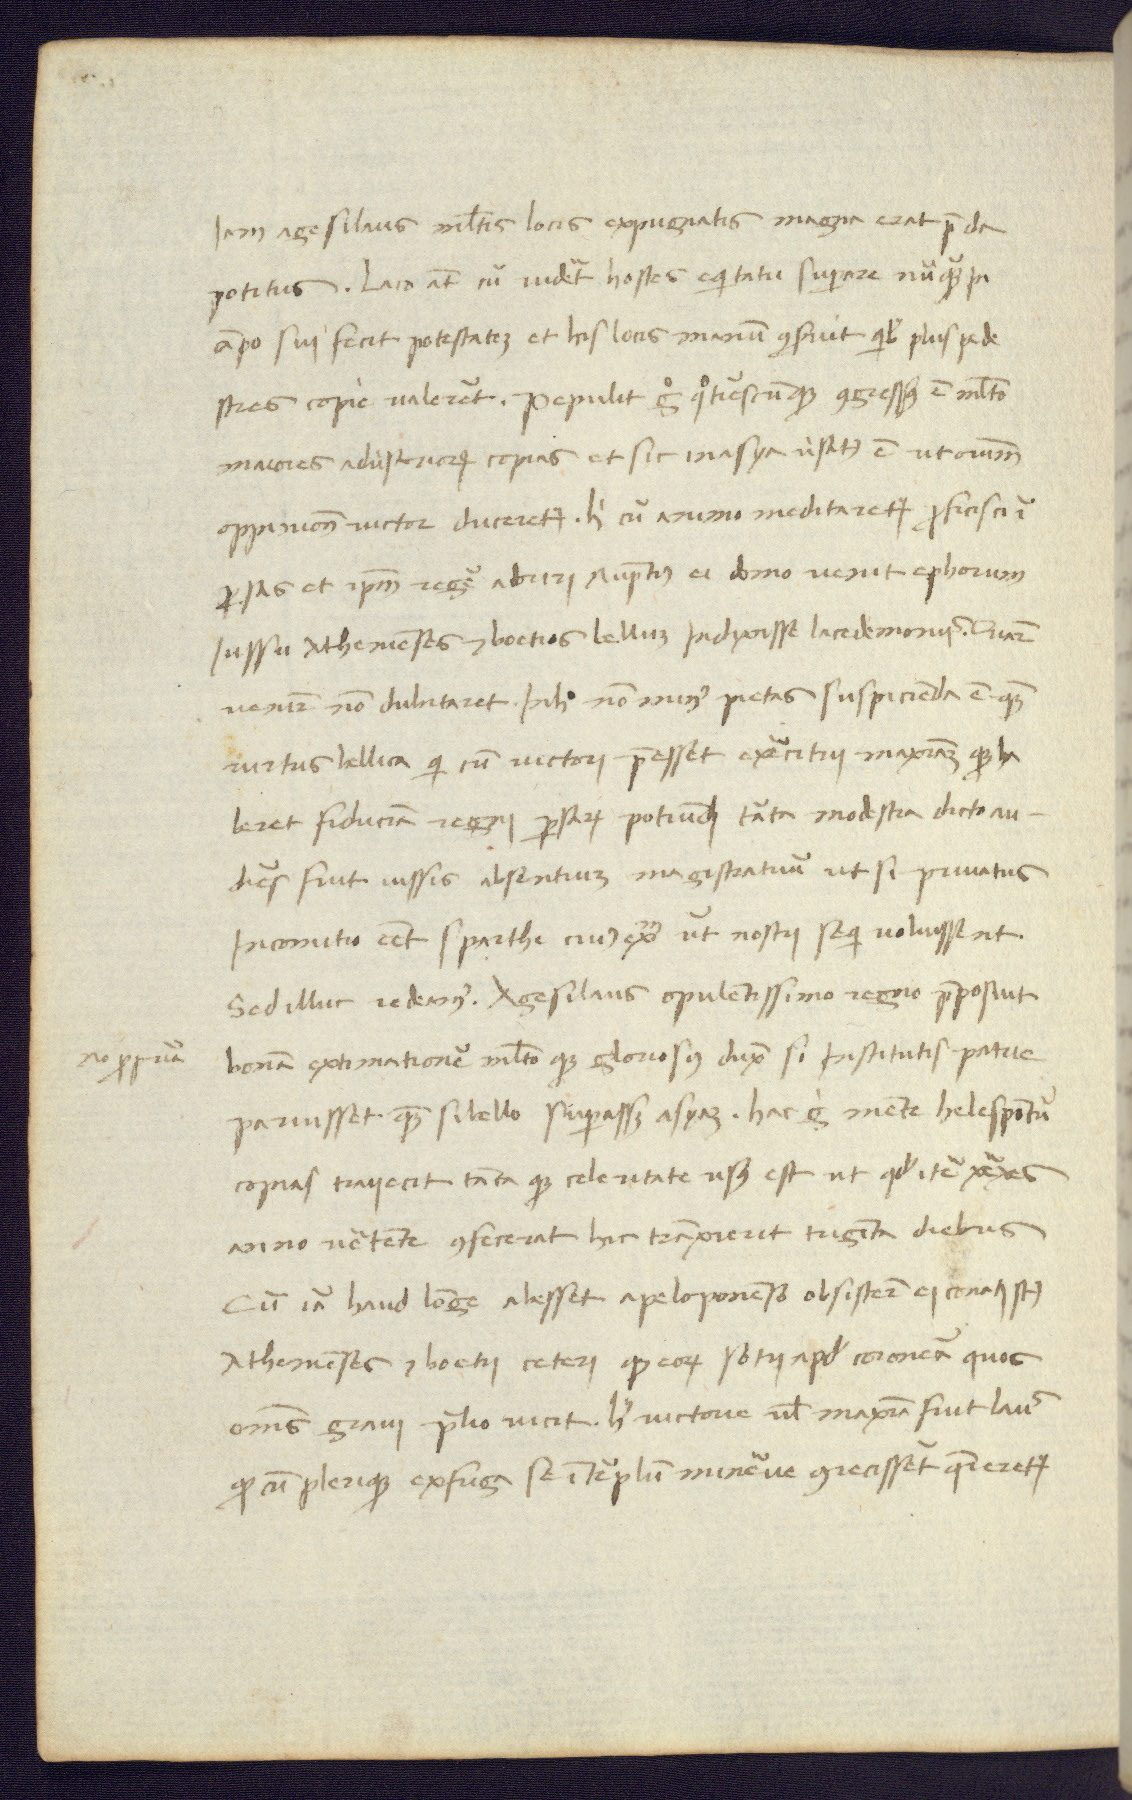 Iam agesilaus ml̃tis locis expugnatis magna erat p̄da
potitus. Laco at̃ cũ uidẽt hostes eq̃tatu suꝑare nũq̃ȝ in
cãpo sui fecit potestatẽ et his locis manũ ꝯseruit qb̃ plus pede
stres copie ualerẽt. Pepulit gͦ qͦtiẽscunqȝ ꝯgressꝰ ẽ ml̃to
maiores aduersarioꝝ copias et sic in asya usatꝰ ẽ ut omniũ
oppinioñ uictor duceretꝛ. hͨ cũ animo meditaretꝛ ꝓficisci ĩ
ꝑsas et ip̃m regẽ adoriri nuptꝰ ei domo uenit ephorum
Iussu Atheniẽses ⁊ boetios bellum Indixisse lacedemonijs. Quar̃
uenir̃ nõ dubitaret. In hͦ nõ minꝰ pietas suspicienda ẽ qȝ̃
uirtus bellica qi cũ uictori p̄esset exercitui maximãqȝ ha
beret fiduciã regni ꝑsarꝝ potiundi tãta modestia dicto au-
diẽs fuit iussis absentium magistratuũ ut si priuatus
In comitio eẽt sparthe cuiꝰ exm̃ ut̃ nostri seqi uoluissent.
Sed illuc redeamꝰ. Agesilaus opulentissimo regno p̄posuit
bonã extimationẽ ml̃toqȝ gloriosiꝰ dux̃ si Institutis patrie
paruisset qȝ̃ si bello suꝑassȝ asyaȝ. hac g̀ mente helespontũ
copias traiecit tantaqȝ celeritate usꝰ est ut qd̃ iter̃ xerxes
anno uertente ꝯfecerat hic trãsierit triginta diebus
Cũ iã haud lõge abesset a peloponenso obsister̃ ei conati st̃
Atheniẽses ⁊ boetii ceteriqȝ eoꝝ sotii apd̃ coroneã quos
oms̃ graui p̃lio uicit. hͥ uictorie ul̃ maxĩa fuit laus
qd̃ cũ pleriqȝ ex fuga se ĩ tẽplũ minerue ꝯiecissẽt q̃rereturꝛ